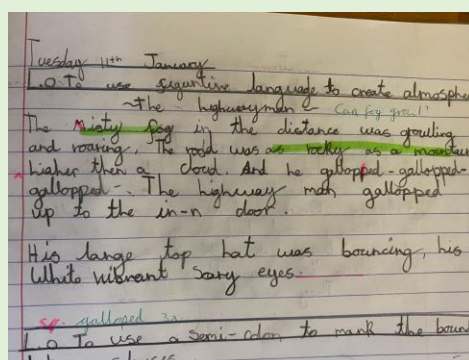 Tuesday 11th January
L.O To use figurative language to create atmosphe
~The highwayman~ Can fog growl?
The Misty fog in the distance was growling
and roaring. The road was as rocky as a mountain
higher then a cloud. And he gallopped-gallopped-
gallopped-. The highway man gallopped
up to the in-n door.
His large top hat was bouncing, his
White vibrant scary eyes.
sp. galloped 3x
L.O To use a semi-colon to mark the bound